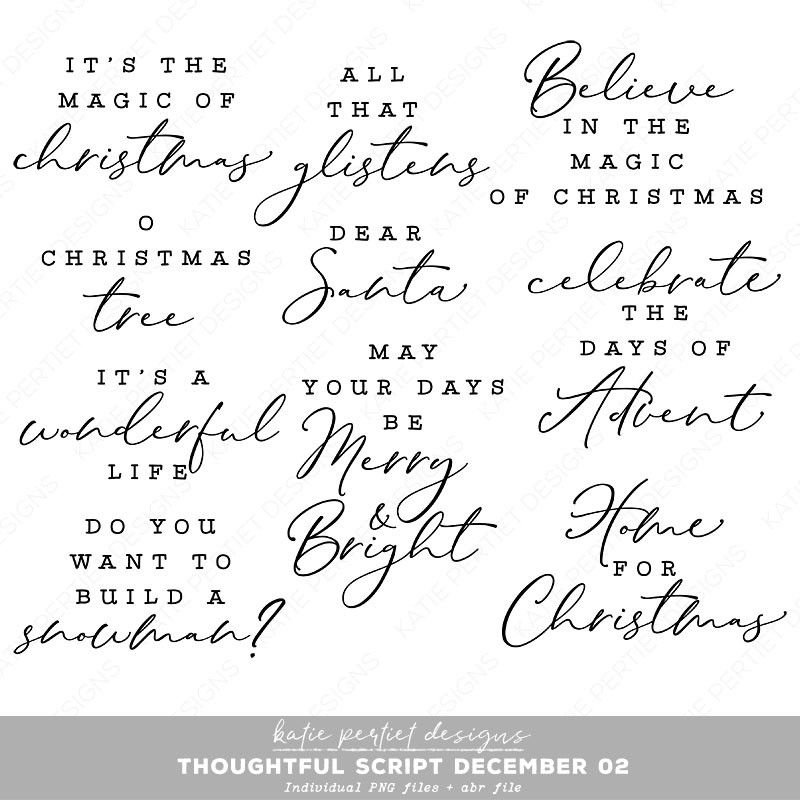 IT'S THE
MAGIC OF
christmas
ALL
THAT
glistens
Believe
IN THE
MAGIC
OF CHRISTMAS
O
CHRISTMAS
tree
DEAR
Santa
celebrate
THE
DAYS OF
Advent
IT'S A
wonderful
LIFE
MAY
YOUR DAYS
BE
Merry
&
Bright
DO YOU
WANT TO
BUILD A
snowman?
Home
FOR
Christmas
katie pertiet designs
THOUGHTFUL SCRIPT DECEMBER 02
Individual PNG files + abr file
KATIE PERTIET DESIGNS